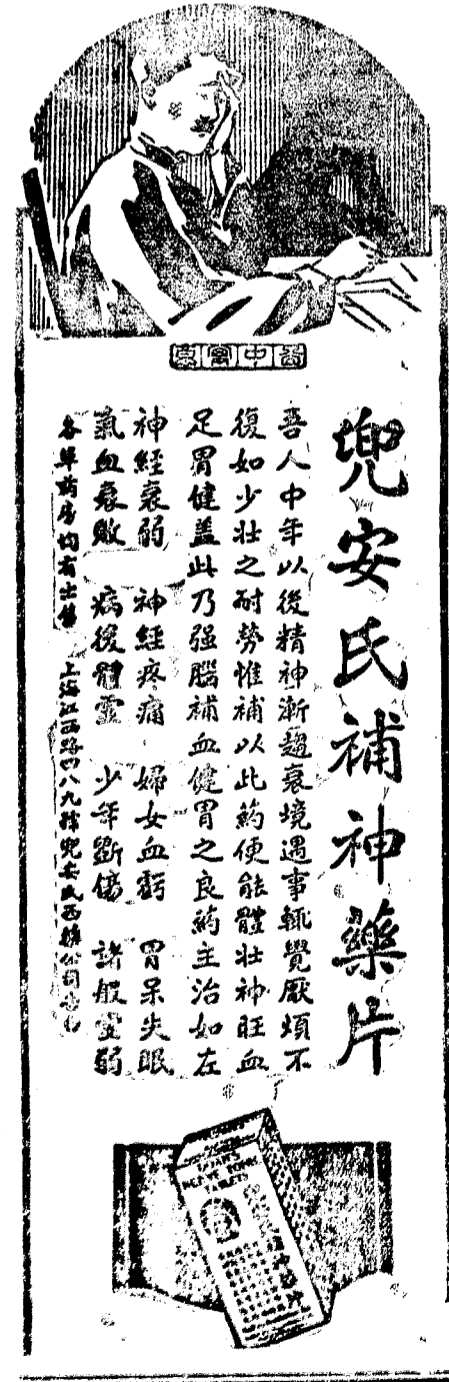 兜安氏補神藥片
吾人中年以後精神漸趨衰境遇事輒覺厭煩不
復如少壯之耐勞惟補以此藥便能體壯神旺血
足胃健蓋此乃强腦補血健胃之良藥主治如左
神經衰弱 神經疼痛 婦女血虧 胃呆失眠
氣血衰敗 病後體虛 少年斲傷 諸般虛弱
各埠藥房均有出售 上海江西路四八九號兜安氏西藥公司
NERVE TONIC
TABLETS